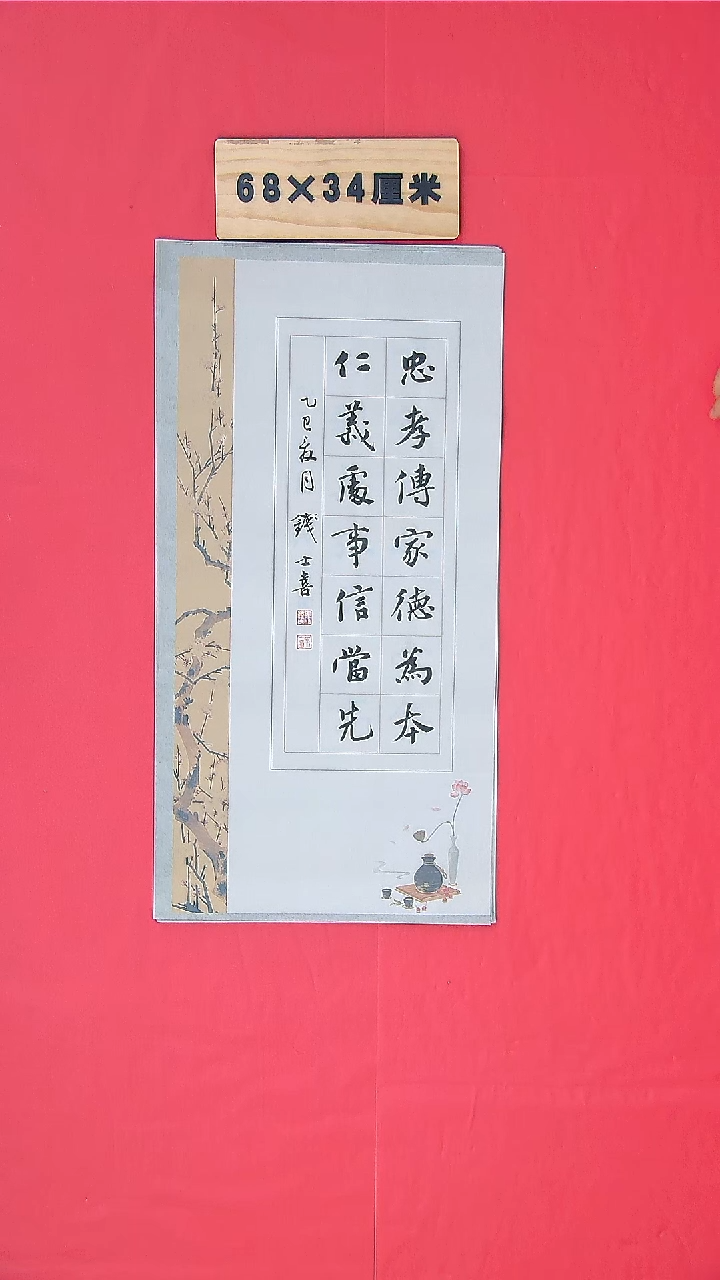 68×34厘米
忠孝傳家德為本
仁義處事信當先
乙巳夜月 錢士喜